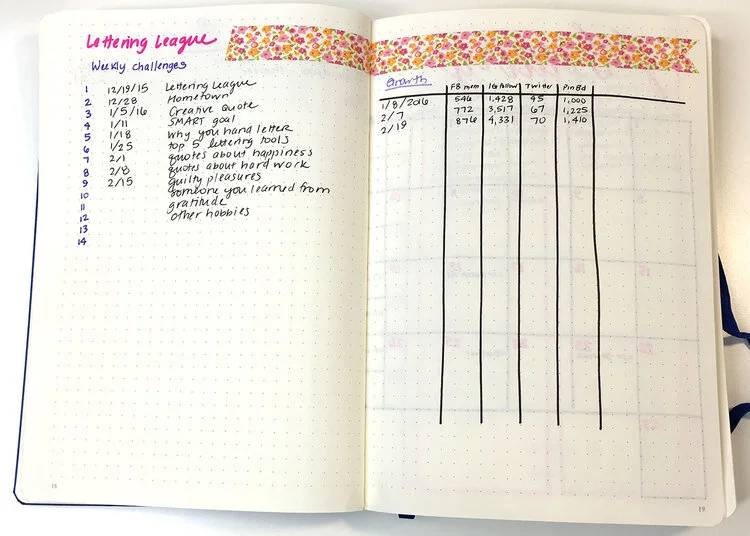 Lettering League
Weekly challenges
1 12/19/15 Lettering League
2 12/28 Hometown
3 1/5/16 Creative Quote
4 1/11 SMART goal
5 1/18 why you hand letter
6 1/25 top 5 lettering tools
7 2/1 quotes about happiness
8 2/8 quotes about hard work
9 2/15 guilty pleasures
10 someone you learned from
11 gratitude
12 other hobbies
13
14
18
Growth
FB mem IG follow Twitter Pin Bd
1/8/2016 546 1,428 45 1,000
2/7 772 3,517 67 1,225
2/19 876 4,331 70 1,410
19